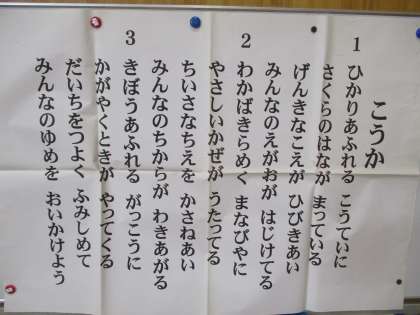 こうか
1
ひかりあふれる こうていに
さくらのはなが まっている
げんきなこえが ひびきあい
みんなのえがおが はじけてる
2
わかばきらめく まなびやに
やさしいかぜが うたってる
ちいさなちえを かさねあい
みんなのちからが わきあがる
3
きぼうあふれる がっこうに
かがやくときが やってくる
だいちをつよく ふみしめて
みんなのゆめを おいかけよう